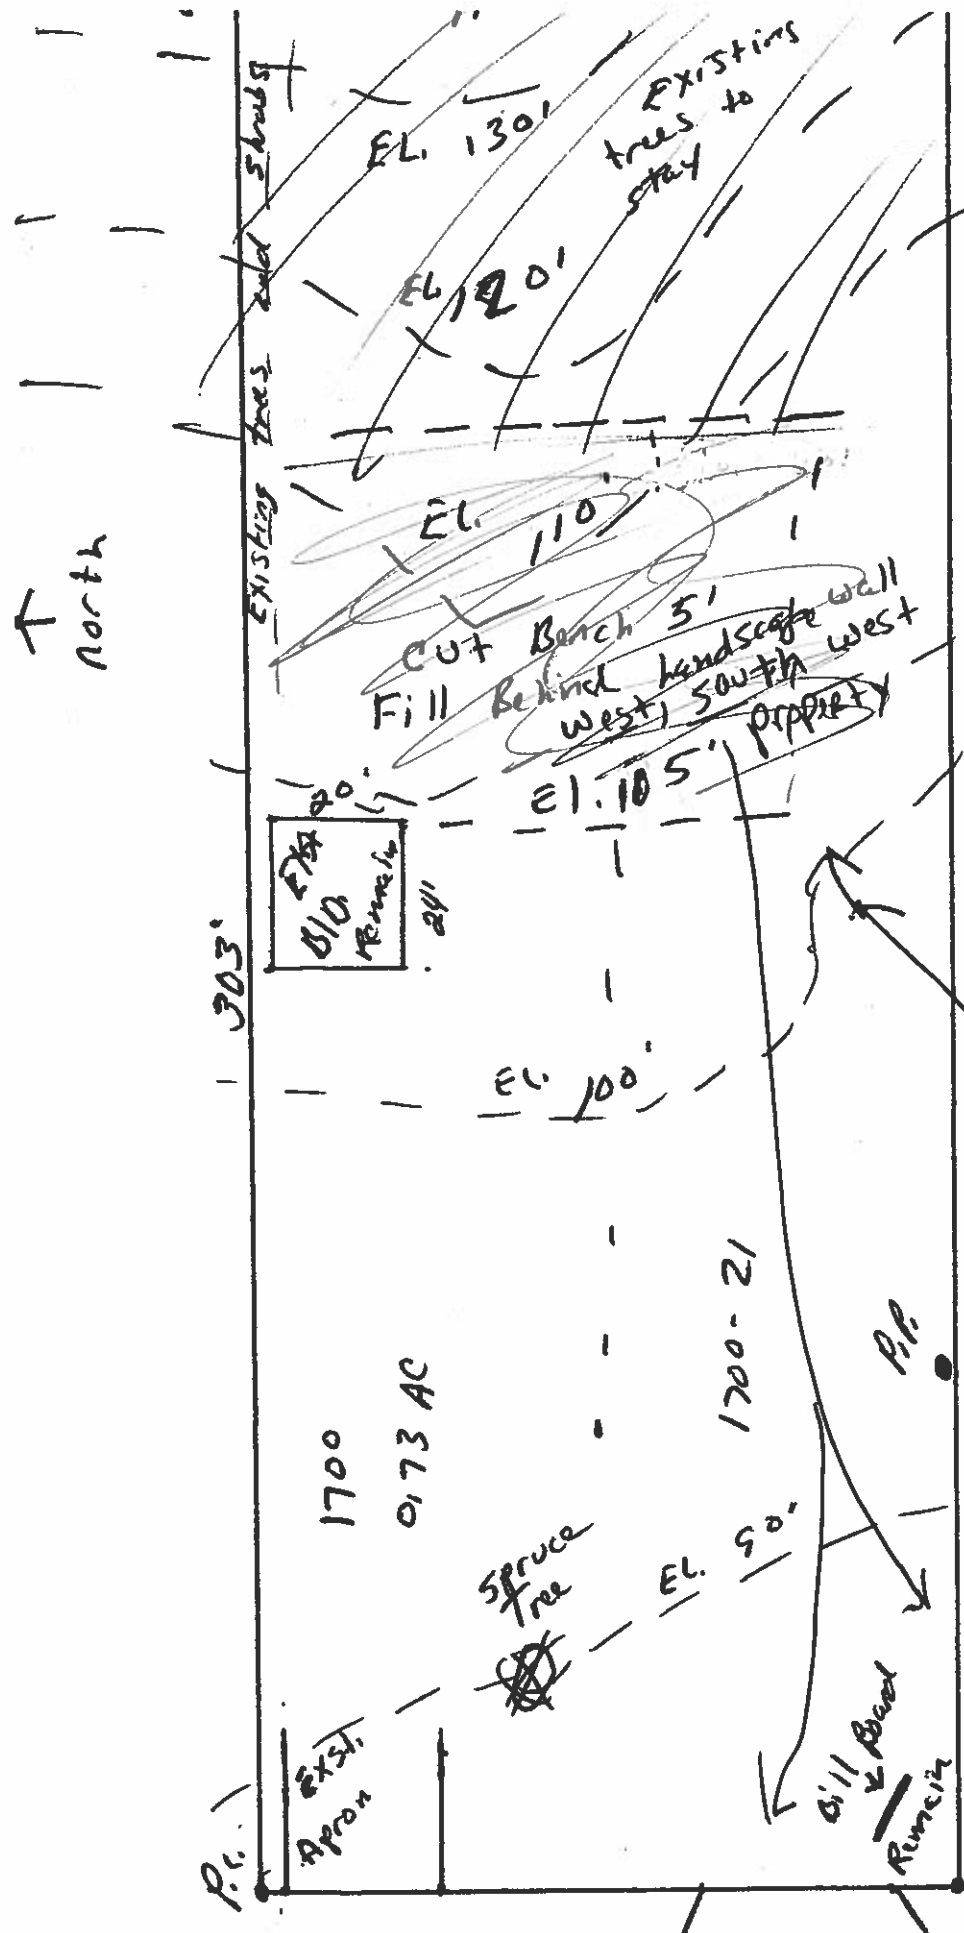 Existing
trees to
stay
EL. 130'
EL. 120'
Existing trees and shrubs
North
EL. 110'
Cut Bench 5'
Fill Behind Landscape wall
west, south west
property
El. 105'
20'
Exst
Bld.
Remain
24'
303'
EL. 100'
1700
0.73 AC
1700-21
P.P.
Spruce
Tree
EL. 90'
Exst.
Apron
Bill Board
Remain